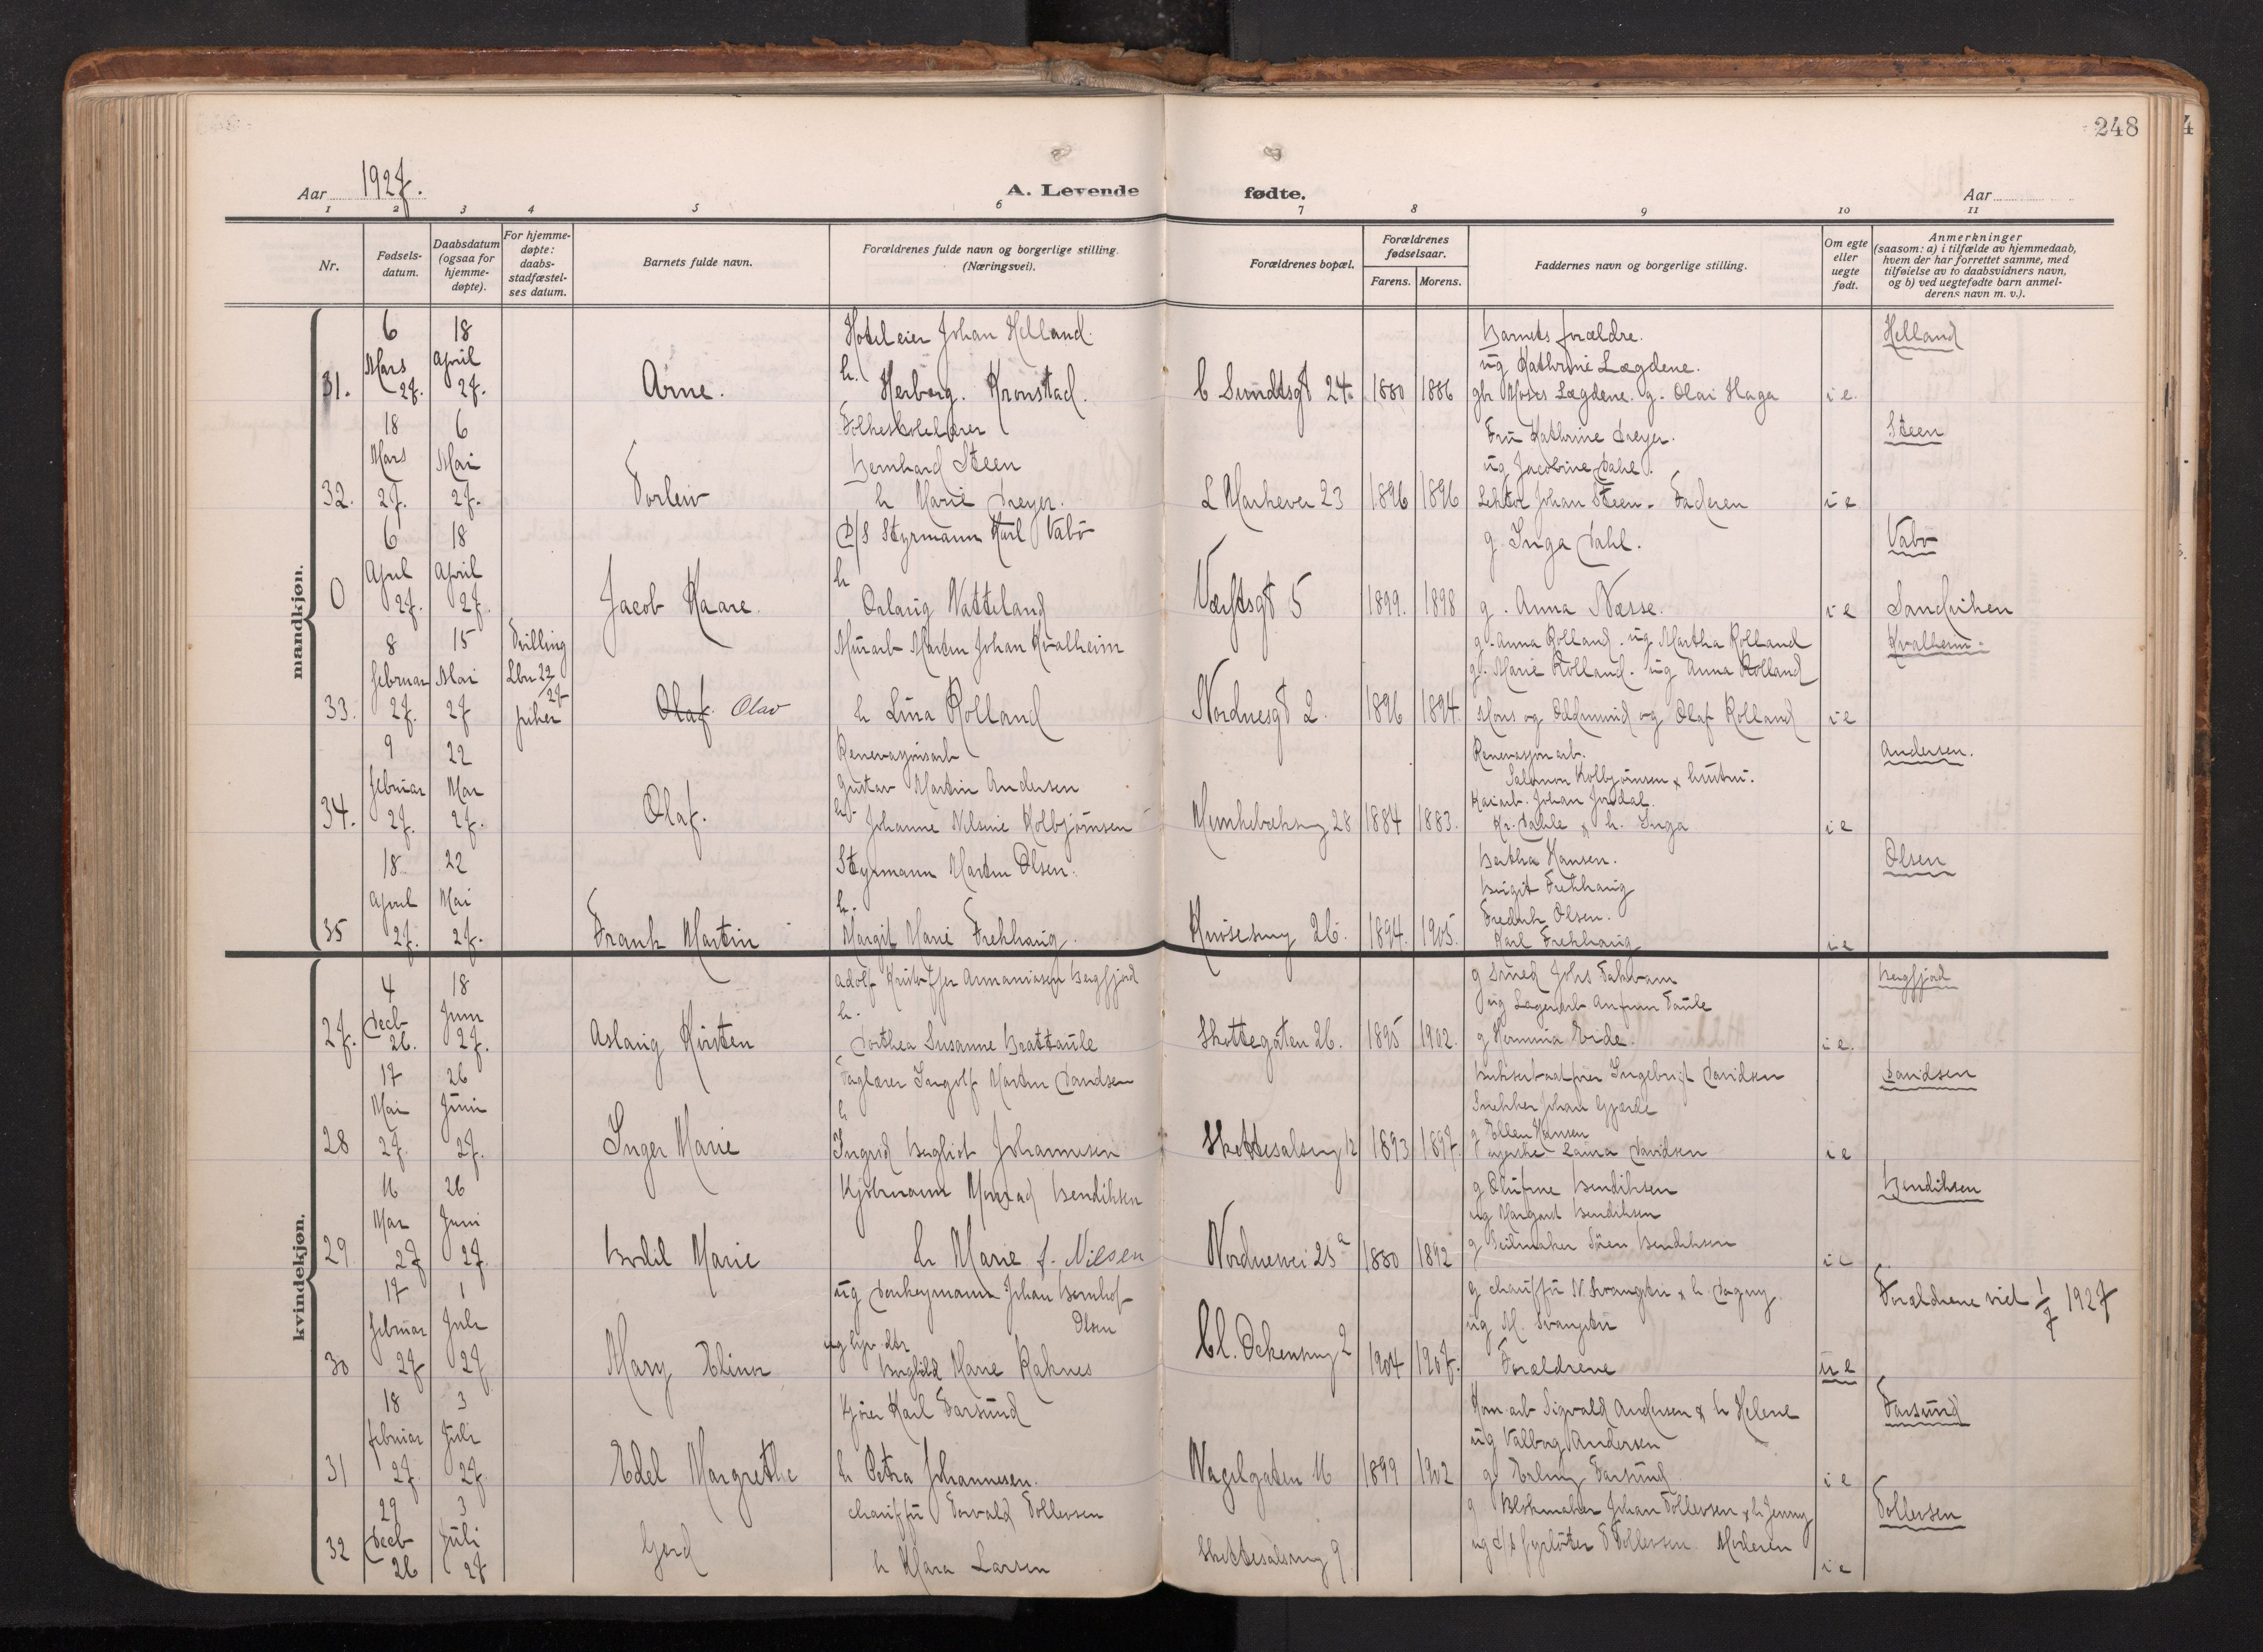 248
Aar 1927.
A. Levende fødte.
Aar
1 2 3 4 5 6 7 8 9 10 11
Nr.
Fødsels-
datum.
Daabsdatum
(ogsaa for
hjemme-
døpte).
For hjemme-
døpte:
daabs-
stadfæstel-
ses datum.
Barnets fulde navn.
Forældrenes fulde navn og borgerlige stilling.
(Næringsvei).
Forældrenes bopæl.
Forældrenes
fødselsaar.
Farens. Morens.
Faddernes navn og borgerlige stilling.
Om egte
eller
uegte
født.
Anmerkninger
(saasom: a) i tilfælde av hjemmedaab,
hvem der har forrettet samme, med
tilføielse av to daabsvidners navn,
og b) ved uegtefødte barn anmel-
derens navn m. v.).
mandkjøn.
31.
6
Mars
27.
18
April
27.
Arne.
Hoteleier Johan Helland.
h.
Herborg. Kronstad.
C Sundtsgt 24
1880 1886
Barnets forældre.
ug Kathrine Lægdene.
gbr Moses Lægdene. g. Olai Haga
i e.
Helland
32.
18
Mars
27.
6
Mai
27.
Torleiv
Folkeskolelærer
Bernhard Steen
h Marie Dreyer.
L Markevei 23
1896 1896
Fru Kathrine Dreyer.
ug Jacobine Dahl.
Lektor Johan Steen. Faderen
i e
Steen
0
6
April
27.
18
April
27.
Jacob Kaare.
D/S Styrmann Karl Vabø
h
Oalaug Natteland
Verftsgt 5
1899. 1898
g. Inga Dahl.
g. Anna Næsse.
i e
Vabø
Sandviken
33.
8
februar
27.
15
Mai
27
Tvilling
Olaf. Olav
Murarb Martin Johan Kvalheim
h Lina Rolland
Nordnesgt 2.
1896 1894.
g. Anna Rolland. ug Martha Rolland
g. Marie Rolland. ug Anna Rolland
Mons og Oddmund og Olaf Rolland
i e
Kvalheim
34.
9
februar
27.
22
Mai
27.
Olaf.
Renovasjonsarb
Gustav Martin Andersen
h
Johanne Nilsine Kolbjørnsen
28
1884 1883.
Renovasjonarb.
Salomon Kolbjørnsen & hustru.
Kaiarb. Johan Jordal.
Kr. Dahle & h. Inga
i e
Andersen.
35
18
April
27.
22
Mai
27.
Frank Martin
Styrmann Martin Olsen.
h.
Margit Marie Frekhaug
Knøsesmg 26.
1894. 1905.
Bertha Hansen.
Birgit Frekhaug
Fredrik Olsen.
Karl Frekhaug
i e
Olsen
kvindekjøn.
27.
4
Decb
26.
18
Juni
27.
Aslaug Kirsten
Adolf Kristoffer Armaniasen Bergfjord
h.
Dorthea Susanne Brattaule
Skottegaten 26.
1895 1902.
g Smed Johs Takvam
ug Lagerarb Anfinn Taule
g Hermina Eide.
i e.
Bergfjord
28
17
Mai
27.
26
Juni
27.
Inger Marie
Faglærer Ingolf Martin Davidsen
h
Ingrid Bergliot Johannesen
Skottesalsmg 12
1893 1897.
Ingebrigt Davidsen
Snekker Johan Gjærde
g Ellen Hansen
Laura Davidsen
i e
Davidsen
29
16
Mai
27
26
Juni
27.
Bodil Marie
Kjøbmann Monrad Bendiksen
h Marie f. Nilsen
Nordnesvei 25 a
1880 1892
g Olufine Bendiksen
ug Margast Bendiksen
g Seilmaker Søren Bendiksen
i e
Bendiksen
30
17
februar
27
1
Juli
27
Mary Elinor
ug Donkeymann Johan Bernhof
Olsen
Borghild Marie Raknes
Cl. Ockensmg 2
1904 1907.
g chauffør N. Svangstu & h. Dagny.
ug M. Svangstu
Forældrene
u e
Forældrene viet 1/7 1927
31
18
februar
27.
3
Juli
27.
Edel Margrethe
Kjører Karl Farsund
h Petra Johannesen.
Nagelgaten 16
1899 1902
Kom arb Sigvald Andersen & h Helene
ug Valborg Andersen
g Erling Farsund
i e
Farsund
32
29
Decb
26
3
Juli
27
Gerd
chauffør Torvald Tollevsen
h Klara Larsen
Skottesalsmg 9
g Blokmaker Johan Tollevsen & h Jenny
ug d/s fyrbøter T Tollevsen. Moderen
i e
Tollevsen